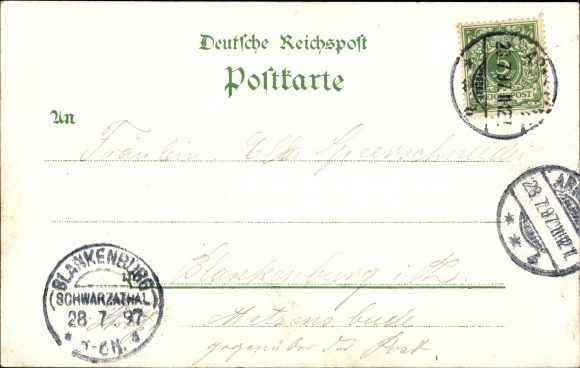 Deutsche Reichspost
Postkarte
REICHSPOST
28.7.97
An
Fräulein Else Speerschneider
28.7.97.
BLANKENBURG
SCHWARZATHAL
28 7 97
in
Blankenburg i. Th.
gegenüber der Post